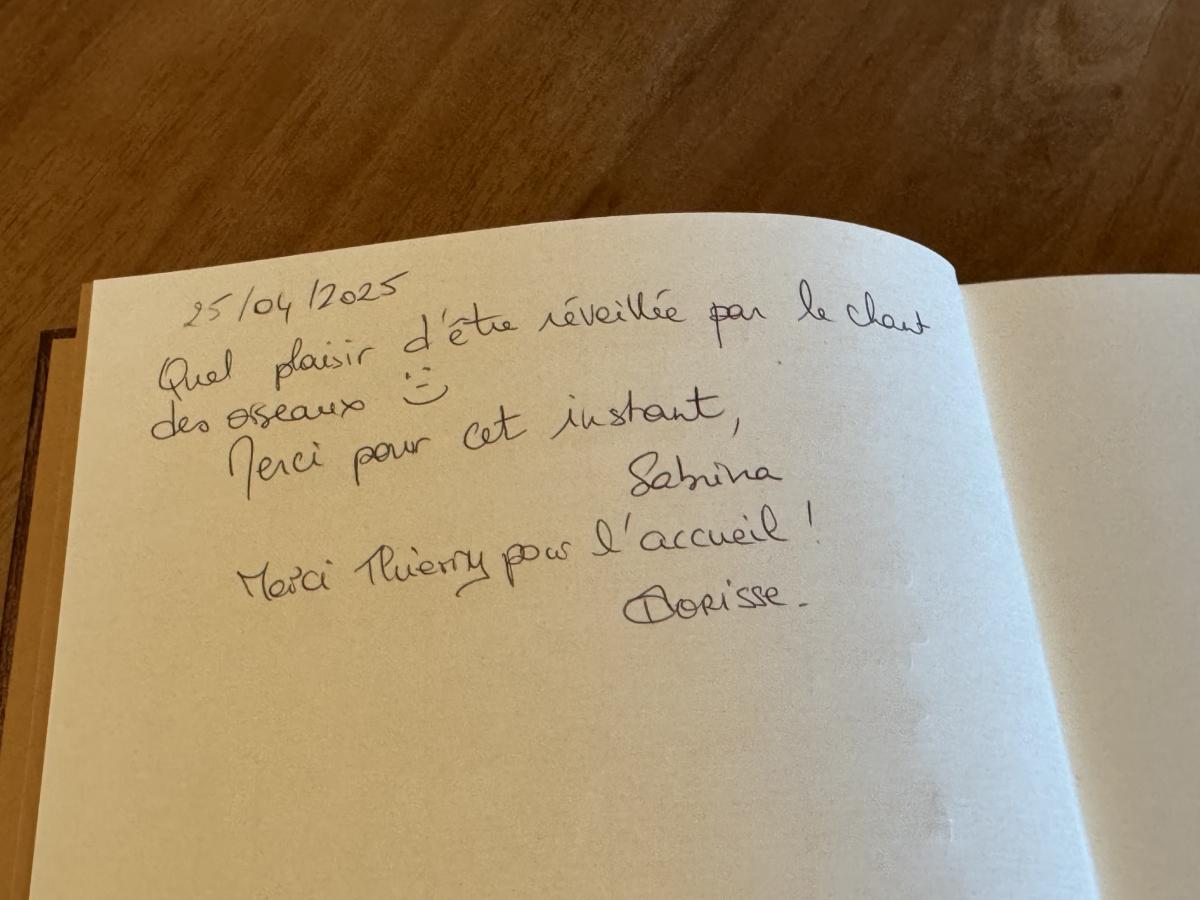 25/04/2025
Quel plaisir d'être réveillée par le chant
des oiseaux :-)
Merci pour cet instant,
Sabrina
Merci Thierry pour l'accueil !
Dorisse.